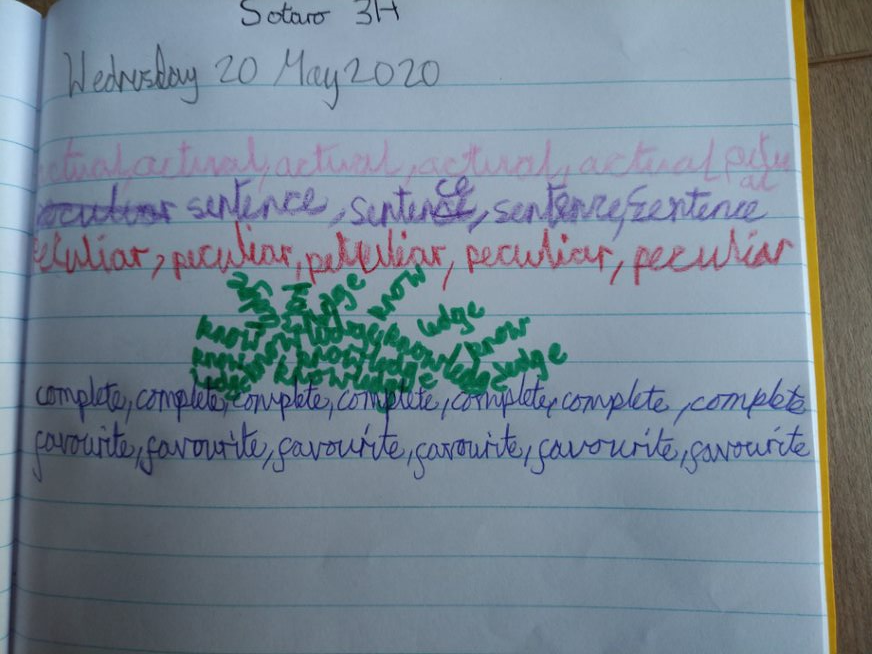 Sotaro 3H
Wednesday 20 May 2020
actual, actual, actual, actual, actual
sentence, sentence, sentence, sentence
peculiar, peculiar, peculiar, peculiar, peculiar
know
ledge
know
know
ledge
know
ledge
knowledge
complete, complete, complete, complete, complete, complete, complete
favourite, favourite, favourite, favourite, favourite, favourite